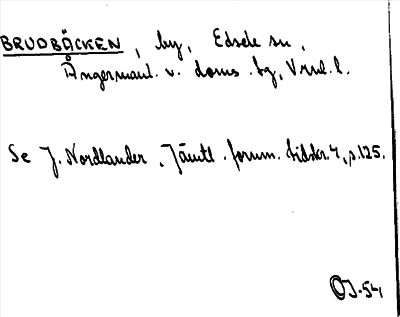 BRUDBÄCKEN, by, Edsele sn,
Ångermanl. v. doms. bg, Vrnl. l.
Se J. Nordlander, Jämtl. fornm. tidskr. 4, s. 125.
OJ-54